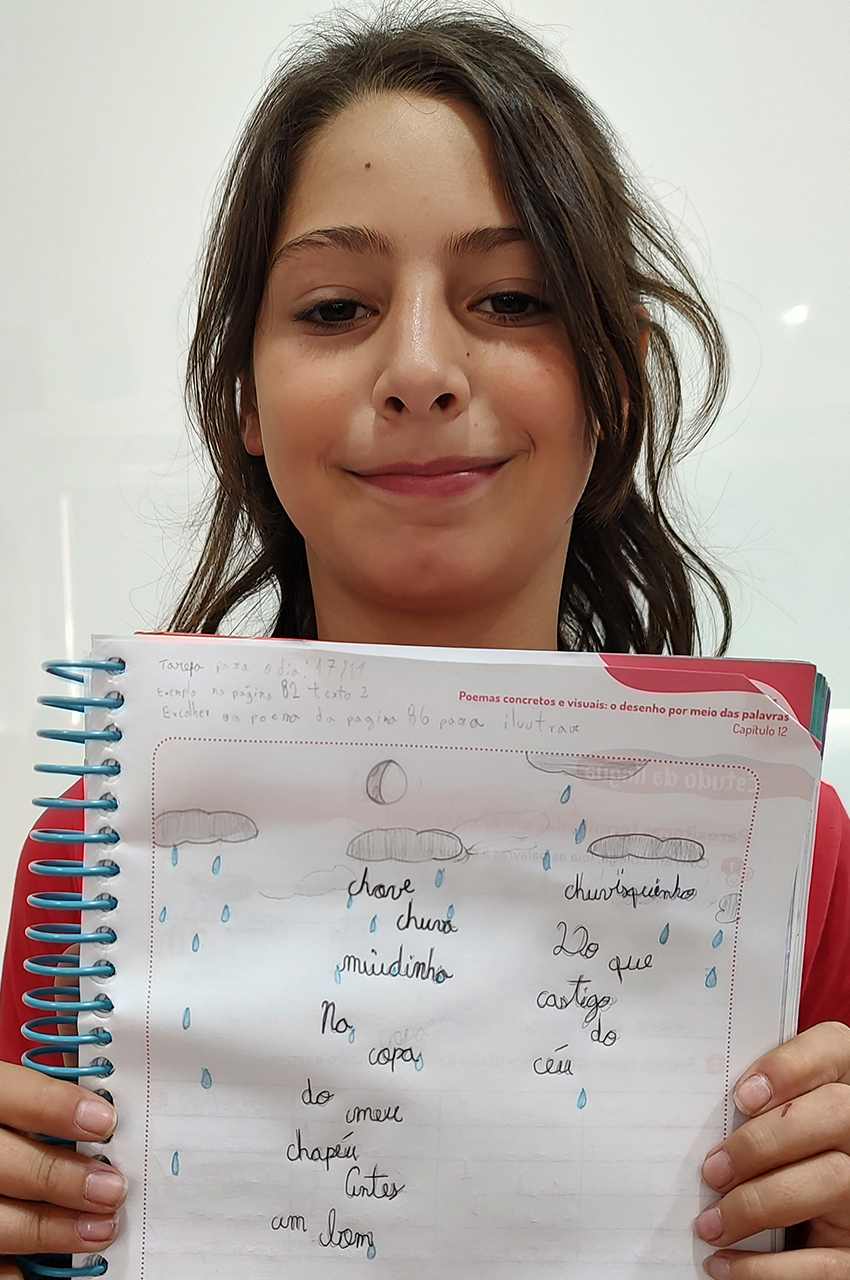 Tarefa para o dia: 17/11
Exemplo na página 82 texto 2
Escolher um poema da pagina 86 para ilustrar
Poemas concretos e visuais: o desenho por meio das palavras
Capítulo 12
chove
chuva
miudinha
Na
copa
do
meu
chapéu
Antes
um bom
chuvisquinho
Do que
castigo
do
céu